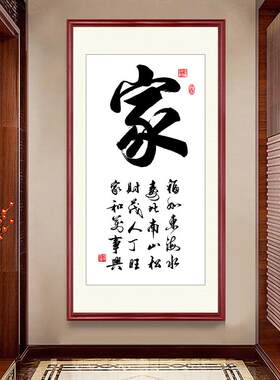 家
福如東海水
壽比南山松
財茂人丁旺
家和萬事興